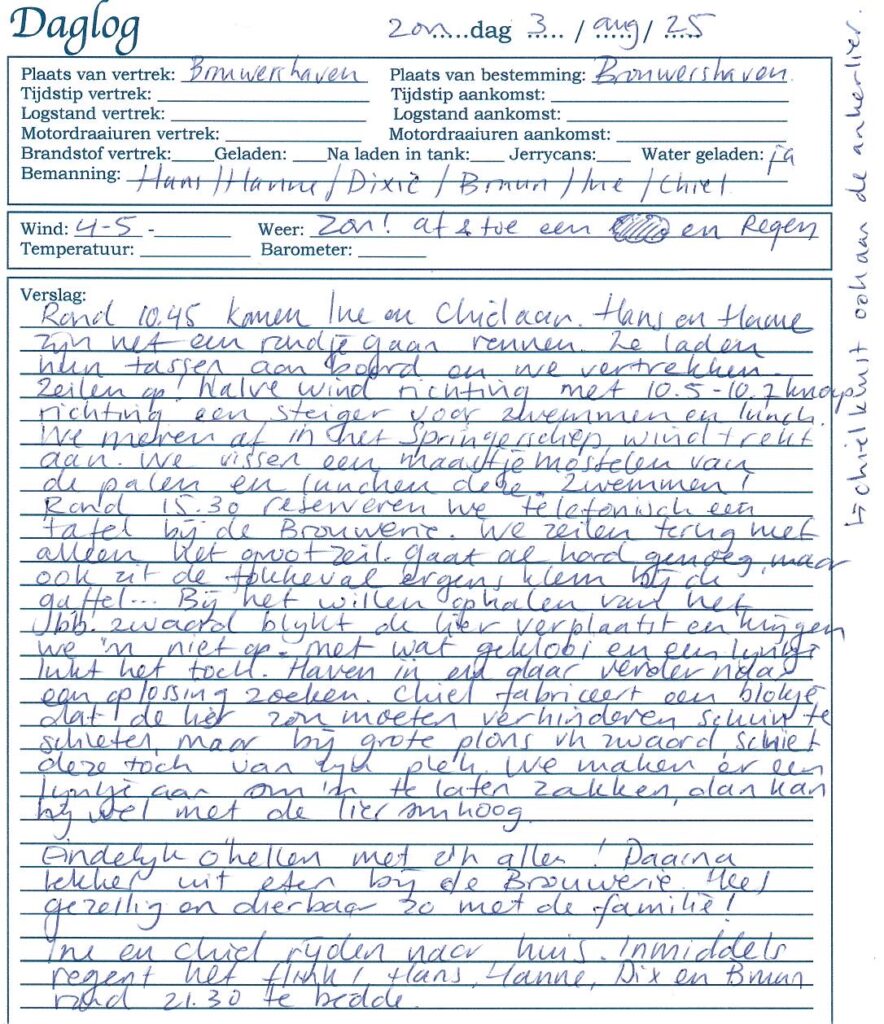 Daglog
zon.....dag 3.... / aug / 25
Plaats van vertrek: Brouwershaven Plaats van bestemming: Brouwershaven
Tijdstip vertrek: Tijdstip aankomst:
Logstand vertrek: Logstand aankomst:
Motordraaiuren vertrek: Motordraaiuren aankomst:
Brandstof vertrek: Geladen: Na laden in tank: Jerrycans: Water geladen: ja
Bemanning: Hans / Hanne / Dixie / Bruun / Ine / Chiel
Wind: 4-5 - Weer: Zon! af & toe een en Regen
Temperatuur: Barometer:
Verslag:
Rond 10.45 komen Ine en Chiel aan. Hans en Hanne
zijn net een rondje gaan rennen. Ze laden
hun tassen aan boord en we vertrekken.
Zeilen op! Halve wind richting met 10.5-10.7 knoop
richting een steiger voor zwemmen en lunch.
We meren af in het Springersdiep, wind trekt
aan. We vissen een maaltje mosselen van
de palen en lunchen deze. Zwemmen!
Rond 15.30 reserveren we telefonisch een
tafel bij de Brouwerie. We zeilen terug met
alleen het grootzeil. Gaat al hard genoeg, maar
ook zit de ergens klem bij de
gaffel... Bij het willen ophalen van het
zwaard blijkt de lier verplaatst en krijgen
we 'm niet op. Met wat geklooi en een lijntje
lukt het toch. Haven in en daar verder naar
een oplossing zoeken. Chiel fabriceert een blokje
dat de lier zou moeten verhinderen scheef te
schieten, maar bij grote plons vh zwaard, schiet
deze toch van zijn plek. We maken er een
lijntje aan om 'm te laten zakken, dan kan
hij wel met de lier omhoog.
Eindelijk o'hellen met z'n allen! Daarna
lekker uit eten bij de Brouwerie. Heel
gezellig en dierbaar zo met de familie!
Ine en Chiel rijden naar huis. Inmiddels
regent het flink! Hans, Hanne, Dix en Bruun
rond 21.30 te bedde.
↳ Chiel klust ook aan de ankerlier.